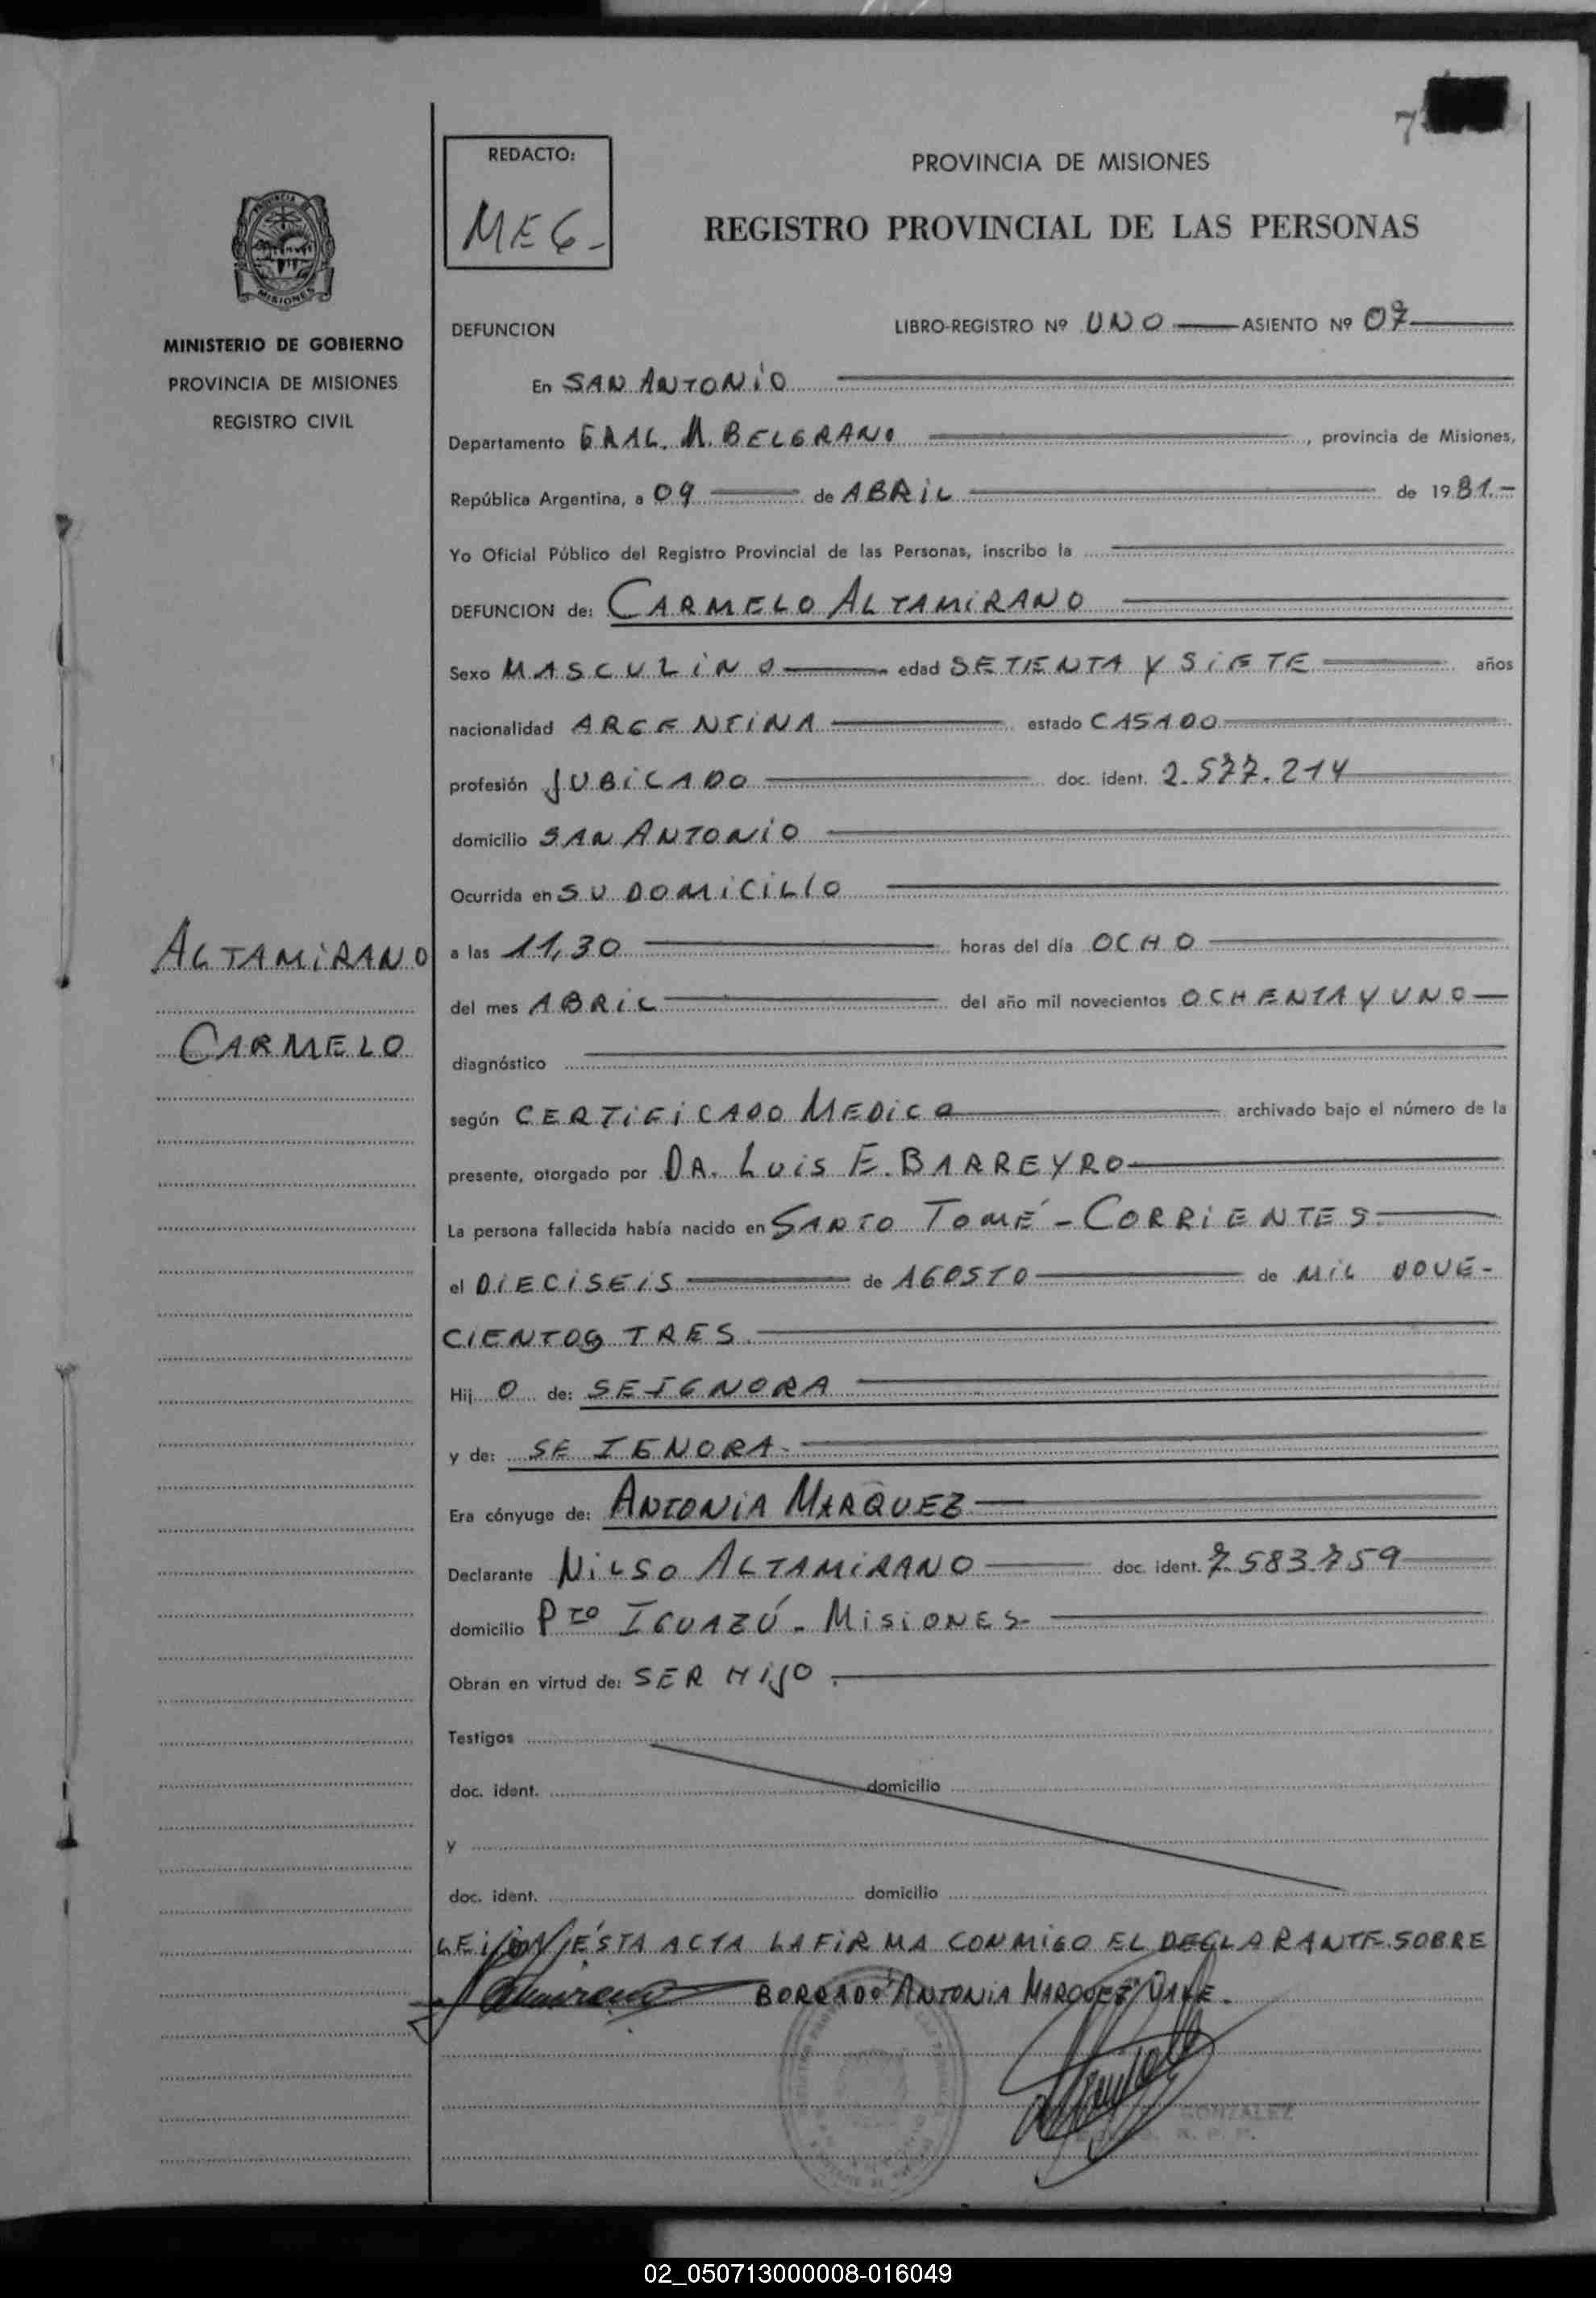 7
REDACTO:
MEG-
PROVINCIA DE MISIONES
REGISTRO PROVINCIAL DE LAS PERSONAS
PROVINCIA DE
MISIONES
MINISTERIO DE GOBIERNO
PROVINCIA DE MISIONES
REGISTRO CIVIL
DEFUNCION LIBRO-REGISTRO Nº UNO ASIENTO Nº 07
En SAN ANTONIO
Departamento GRAL. M. BELGRANO, provincia de Misiones,
República Argentina, a 09 de ABRIL de 1981.-
Yo Oficial Público del Registro Provincial de las Personas, inscribo la
DEFUNCION de: CARMELO ALTAMIRANO
Sexo MASCULINO edad SETENTA Y SIETE años
nacionalidad ARGENTINA estado CASADO
profesión JUBILADO doc. ident. 2.577.214
domicilio SAN ANTONIO
Ocurrida en SU DOMICILIO
ALTAMIRANO
CARMELO
a las 11,30 horas del día OCHO
del mes ABRIL del año mil novecientos OCHENTA Y UNO
diagnóstico
según CERTIFICADO MEDICO archivado bajo el número de la
presente, otorgado por DR. LUIS E. BARREYRO
La persona fallecida había nacido en SANTO TOMÉ - CORRIENTES.
el DIECISEIS de AGOSTO de MIL NOVE-
CIENTOS TRES.
Hij O de: SE IGNORA
y de: SE IGNORA.
Era cónyuge de: ANTONIA MARQUEZ
Declarante NILSO ALTAMIRANO doc. ident. 7.583.759
domicilio Pto IGUAZÚ - MISIONES
Obran en virtud de: SER HIJO.
Testigos
doc. ident. domicilio
y
doc. ident. domicilio
LEIDA ÉSTA ACTA LA FIRMA CONMIGO EL DECLARANTE. SOBRE
BORRADO: ANTONIA MARQUEZ VALE.
GONZALEZ
02_050713000008-016049